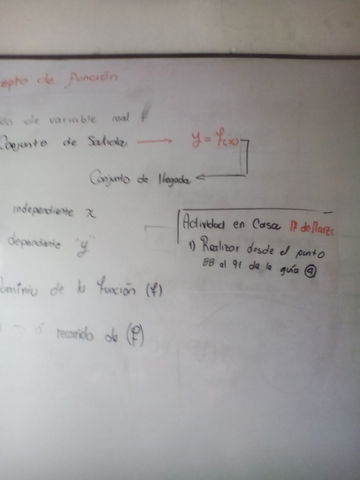 epto de función
ón de variable real f
Conjunto de Salida → y = f(x)
Conjunto de llegada ←
independiente x
Actividad en Casa 17 de Marzo
dependiente "y"
1) Realizar desde el punto
88 al 91 de la guía 9
ominio de la función (f)
ó recorrido de (f)